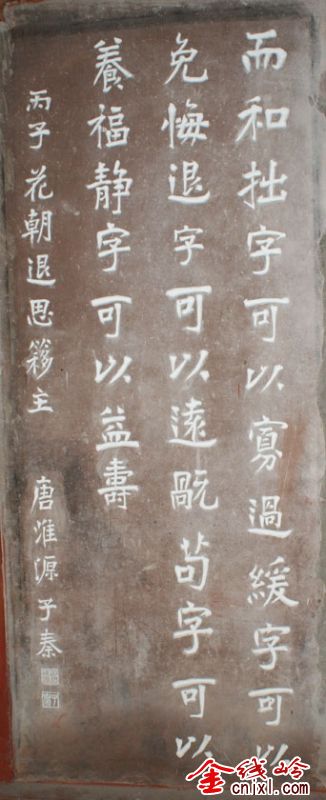 而和拙字可以寡過緩字可以
免悔退字可以遠旤苟字可以
養福静字可以益壽
丙子花朝退思簃主 唐淮源子秦
金线岭
cnjxl.com